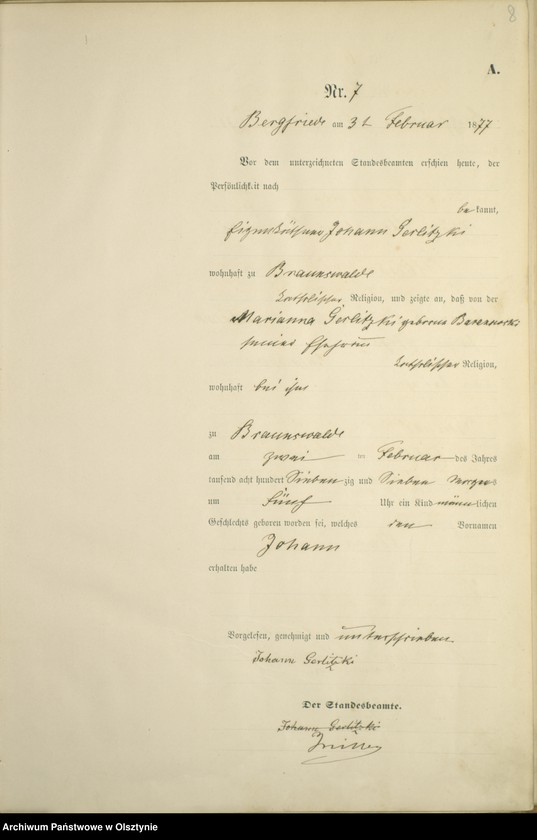 8
A.
Nr. 7
Bergfriede am 3t Februar 1877
Vor dem unterzeichneten Standesbeamten erschien heute, der
Persönlichkeit nach
bekannt,
Eigenkäthner Johann Gerlitzki
wohnhaft zu Braunswalde
katholischer Religion, und zeigte an, daß von der
Marianna Gerlitzki geborne
seiner Ehefrau
katholischer Religion,
wohnhaft bei ihm
zu Braunswalde
am zwei ten Februar des Jahres
tausend acht hundert Sieben zig und Sieben Morgens
um Fünf Uhr ein Kind männlichen
Geschlechts geboren worden sei, welches den Vornamen
Johann
erhalten habe
Vorgelesen, genehmigt und unterschrieben
Johann Gerlitzki
Der Standesbeamte.
Johann Gerlitzki
Archiwum Państwowe w Olsztynie